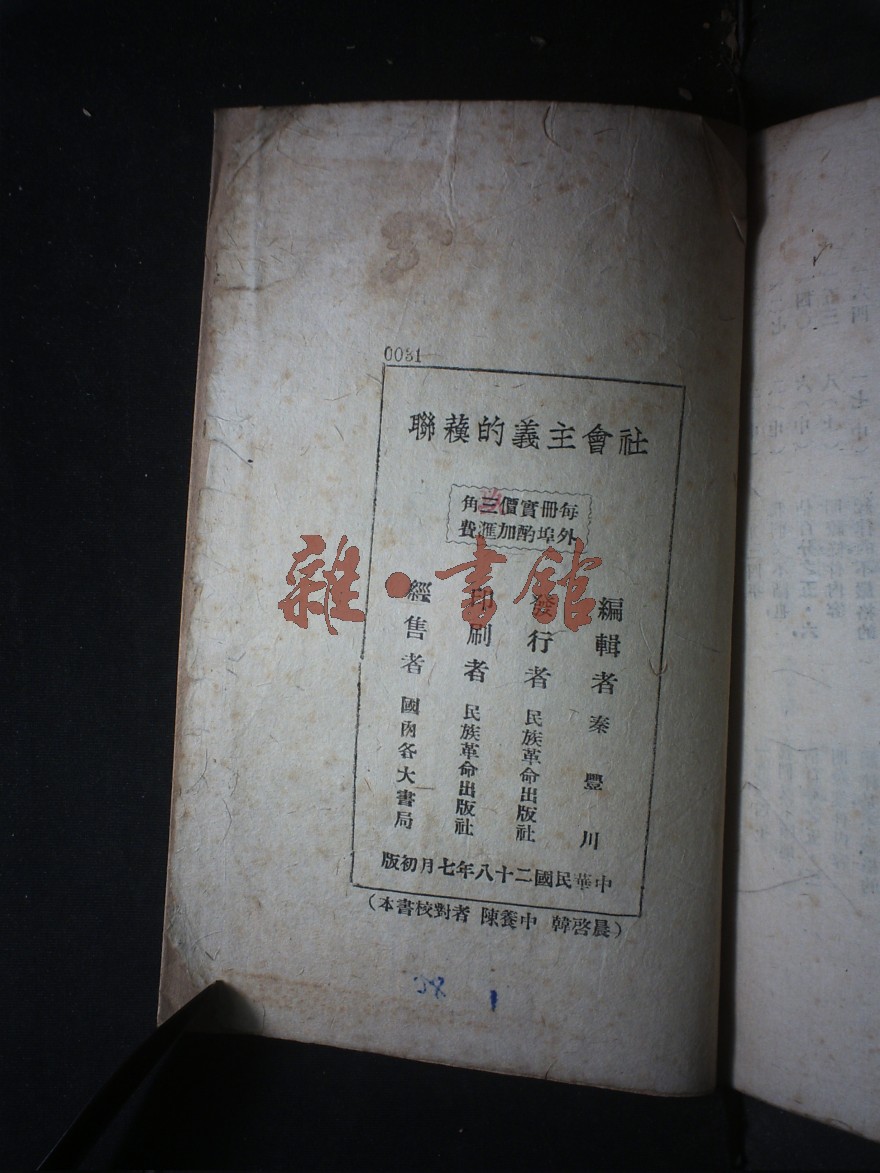 0031
社會主義的蘓聯
每冊實價三角
外埠酌加滙費
編輯者 秦豐川
發行者 民族革命出版社
印刷者 民族革命出版社
經售者 國內各大書局
中華民國二十八年七月初版
（本書校對者 陳養中 韓啓晨）
38 1
雜·書館